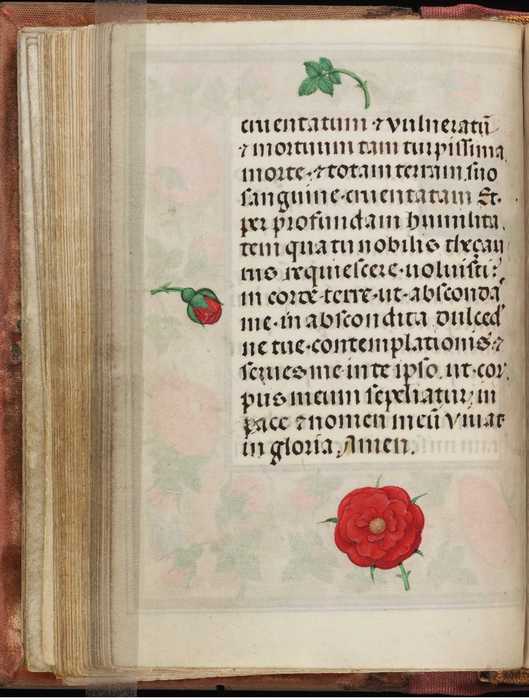 cruentatum ⁊ vulneratū
⁊ mortuum tam turpissima
morte· ⁊ totam terram suo
sanguine· cruentatam Et·
per profundam humilita
tem qua tu nobilis thezau
rus requiescere· uoluisti:
in corde· terre· ut· absconda
me· in abscondita dulced
ne tue· contemplationis· ⁊
serues me in te ipso. ut· cor
pus meum sepeliatur· in
pace ⁊ nomen meū viuat
in gloria, Amen.